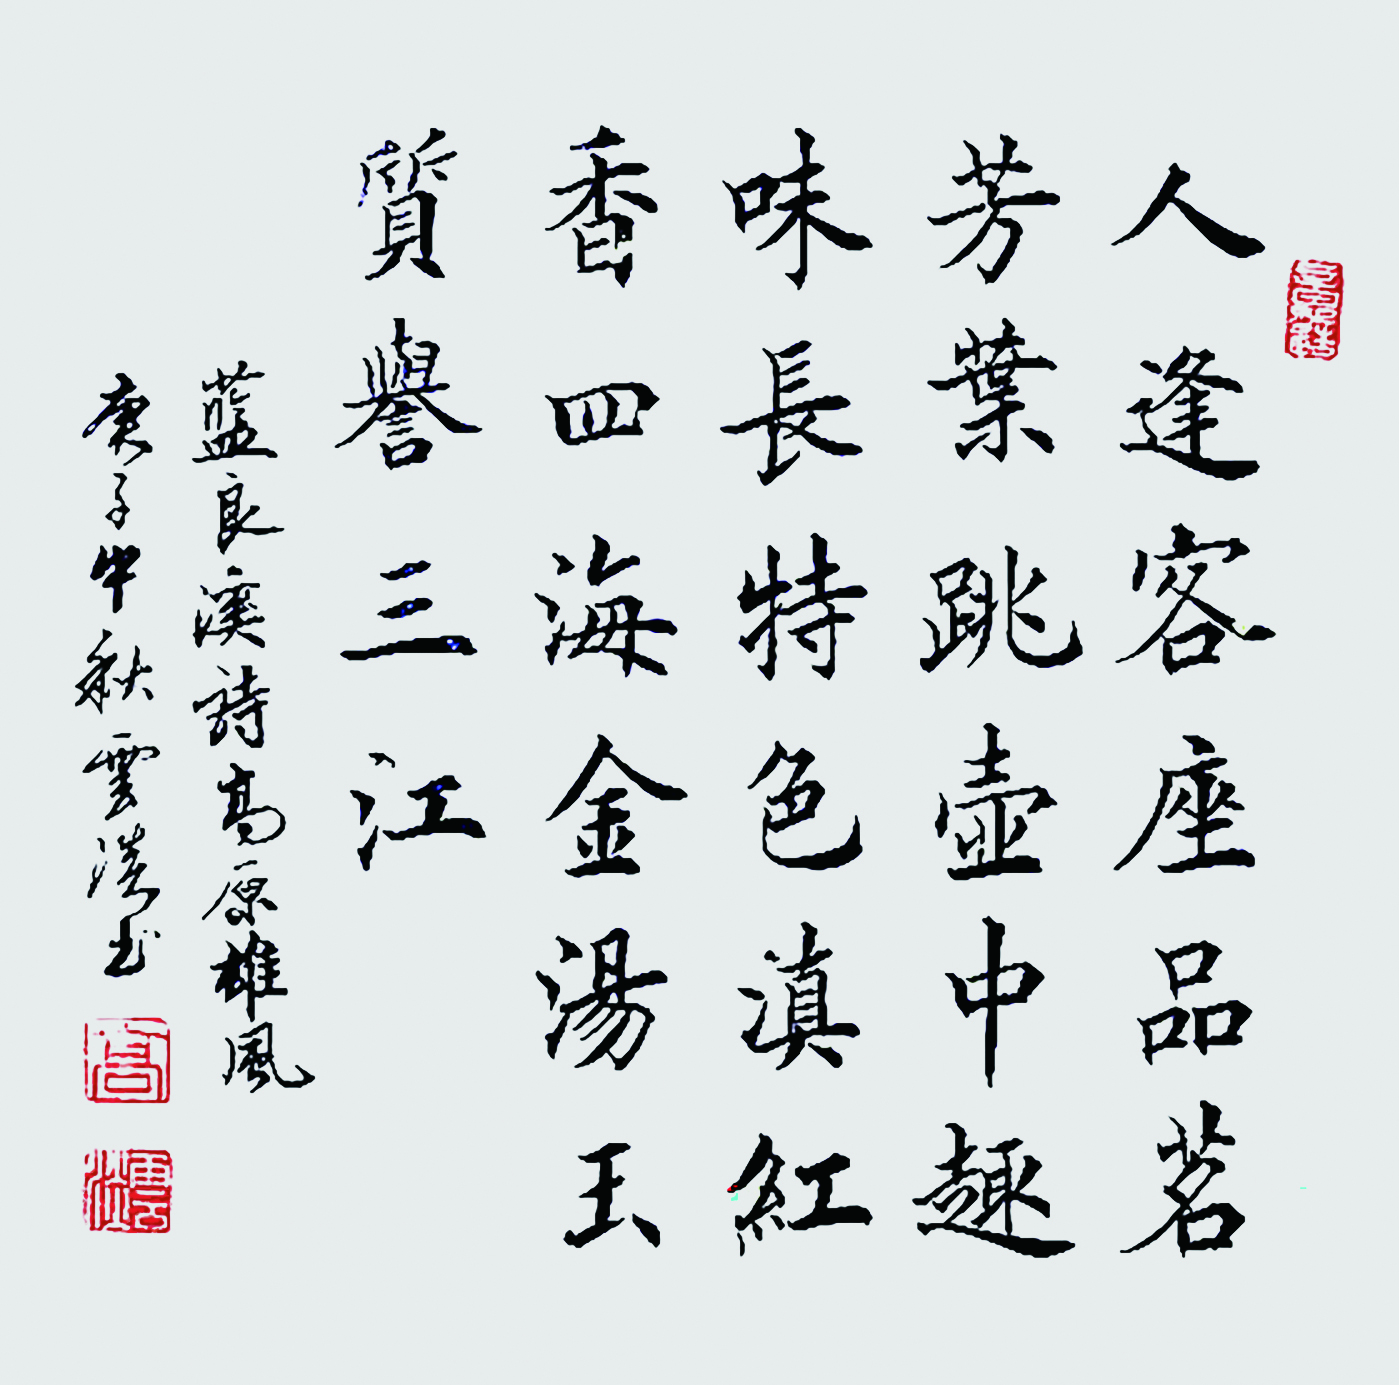 人逢客座品茗
芳葉跳壺中趣
味長特色滇紅
香四海金湯玉
質譽三江
藍良溪詩高原雄風
庚子中秋雲浩書